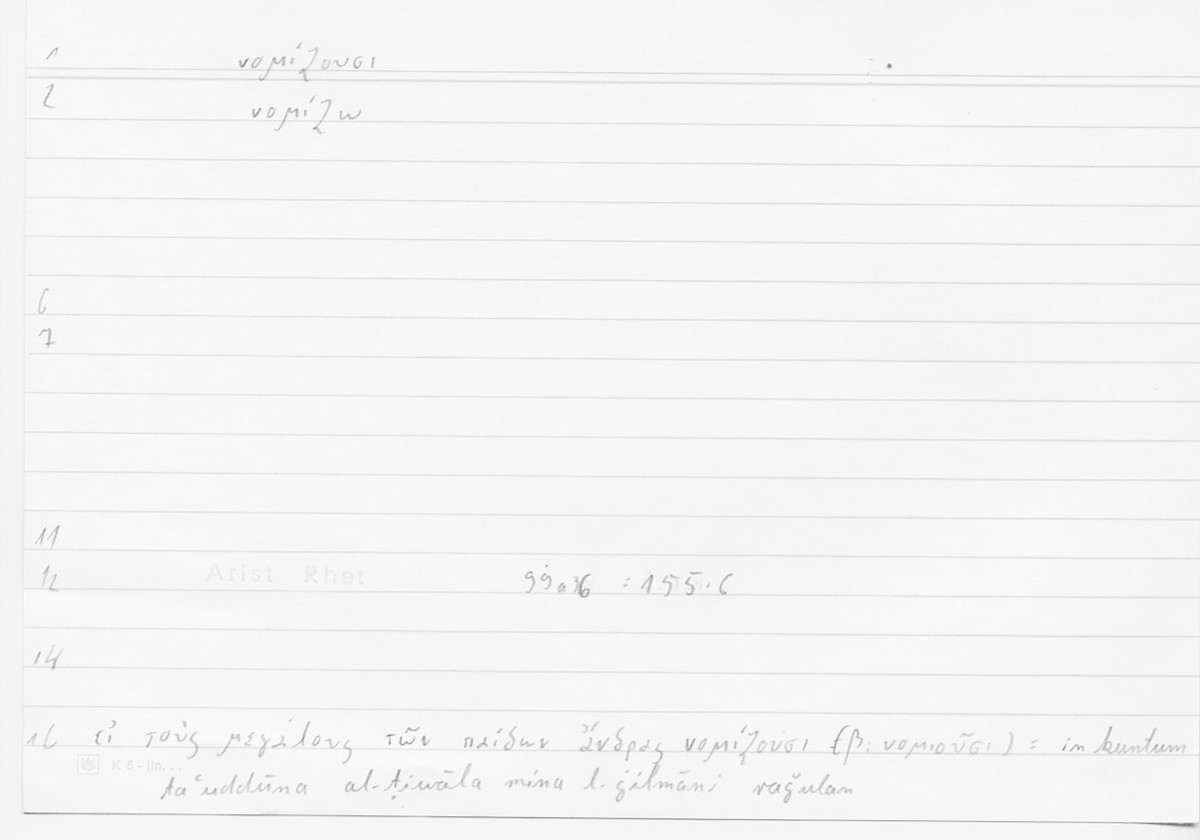 1 νομίζουσι
2 νομίζω
6
7
11
12 Arist Rhet 99a36 : 155.6
14
16 εἰ τοὺς μεγάλους τῶν παίδων ἄνδρας νομίζουσι (β: νομιοῦσι) = in kuntum
K 8 - lin...
taʿuddūna al-ṭiwāla mina l-ġilmāni raǧulan